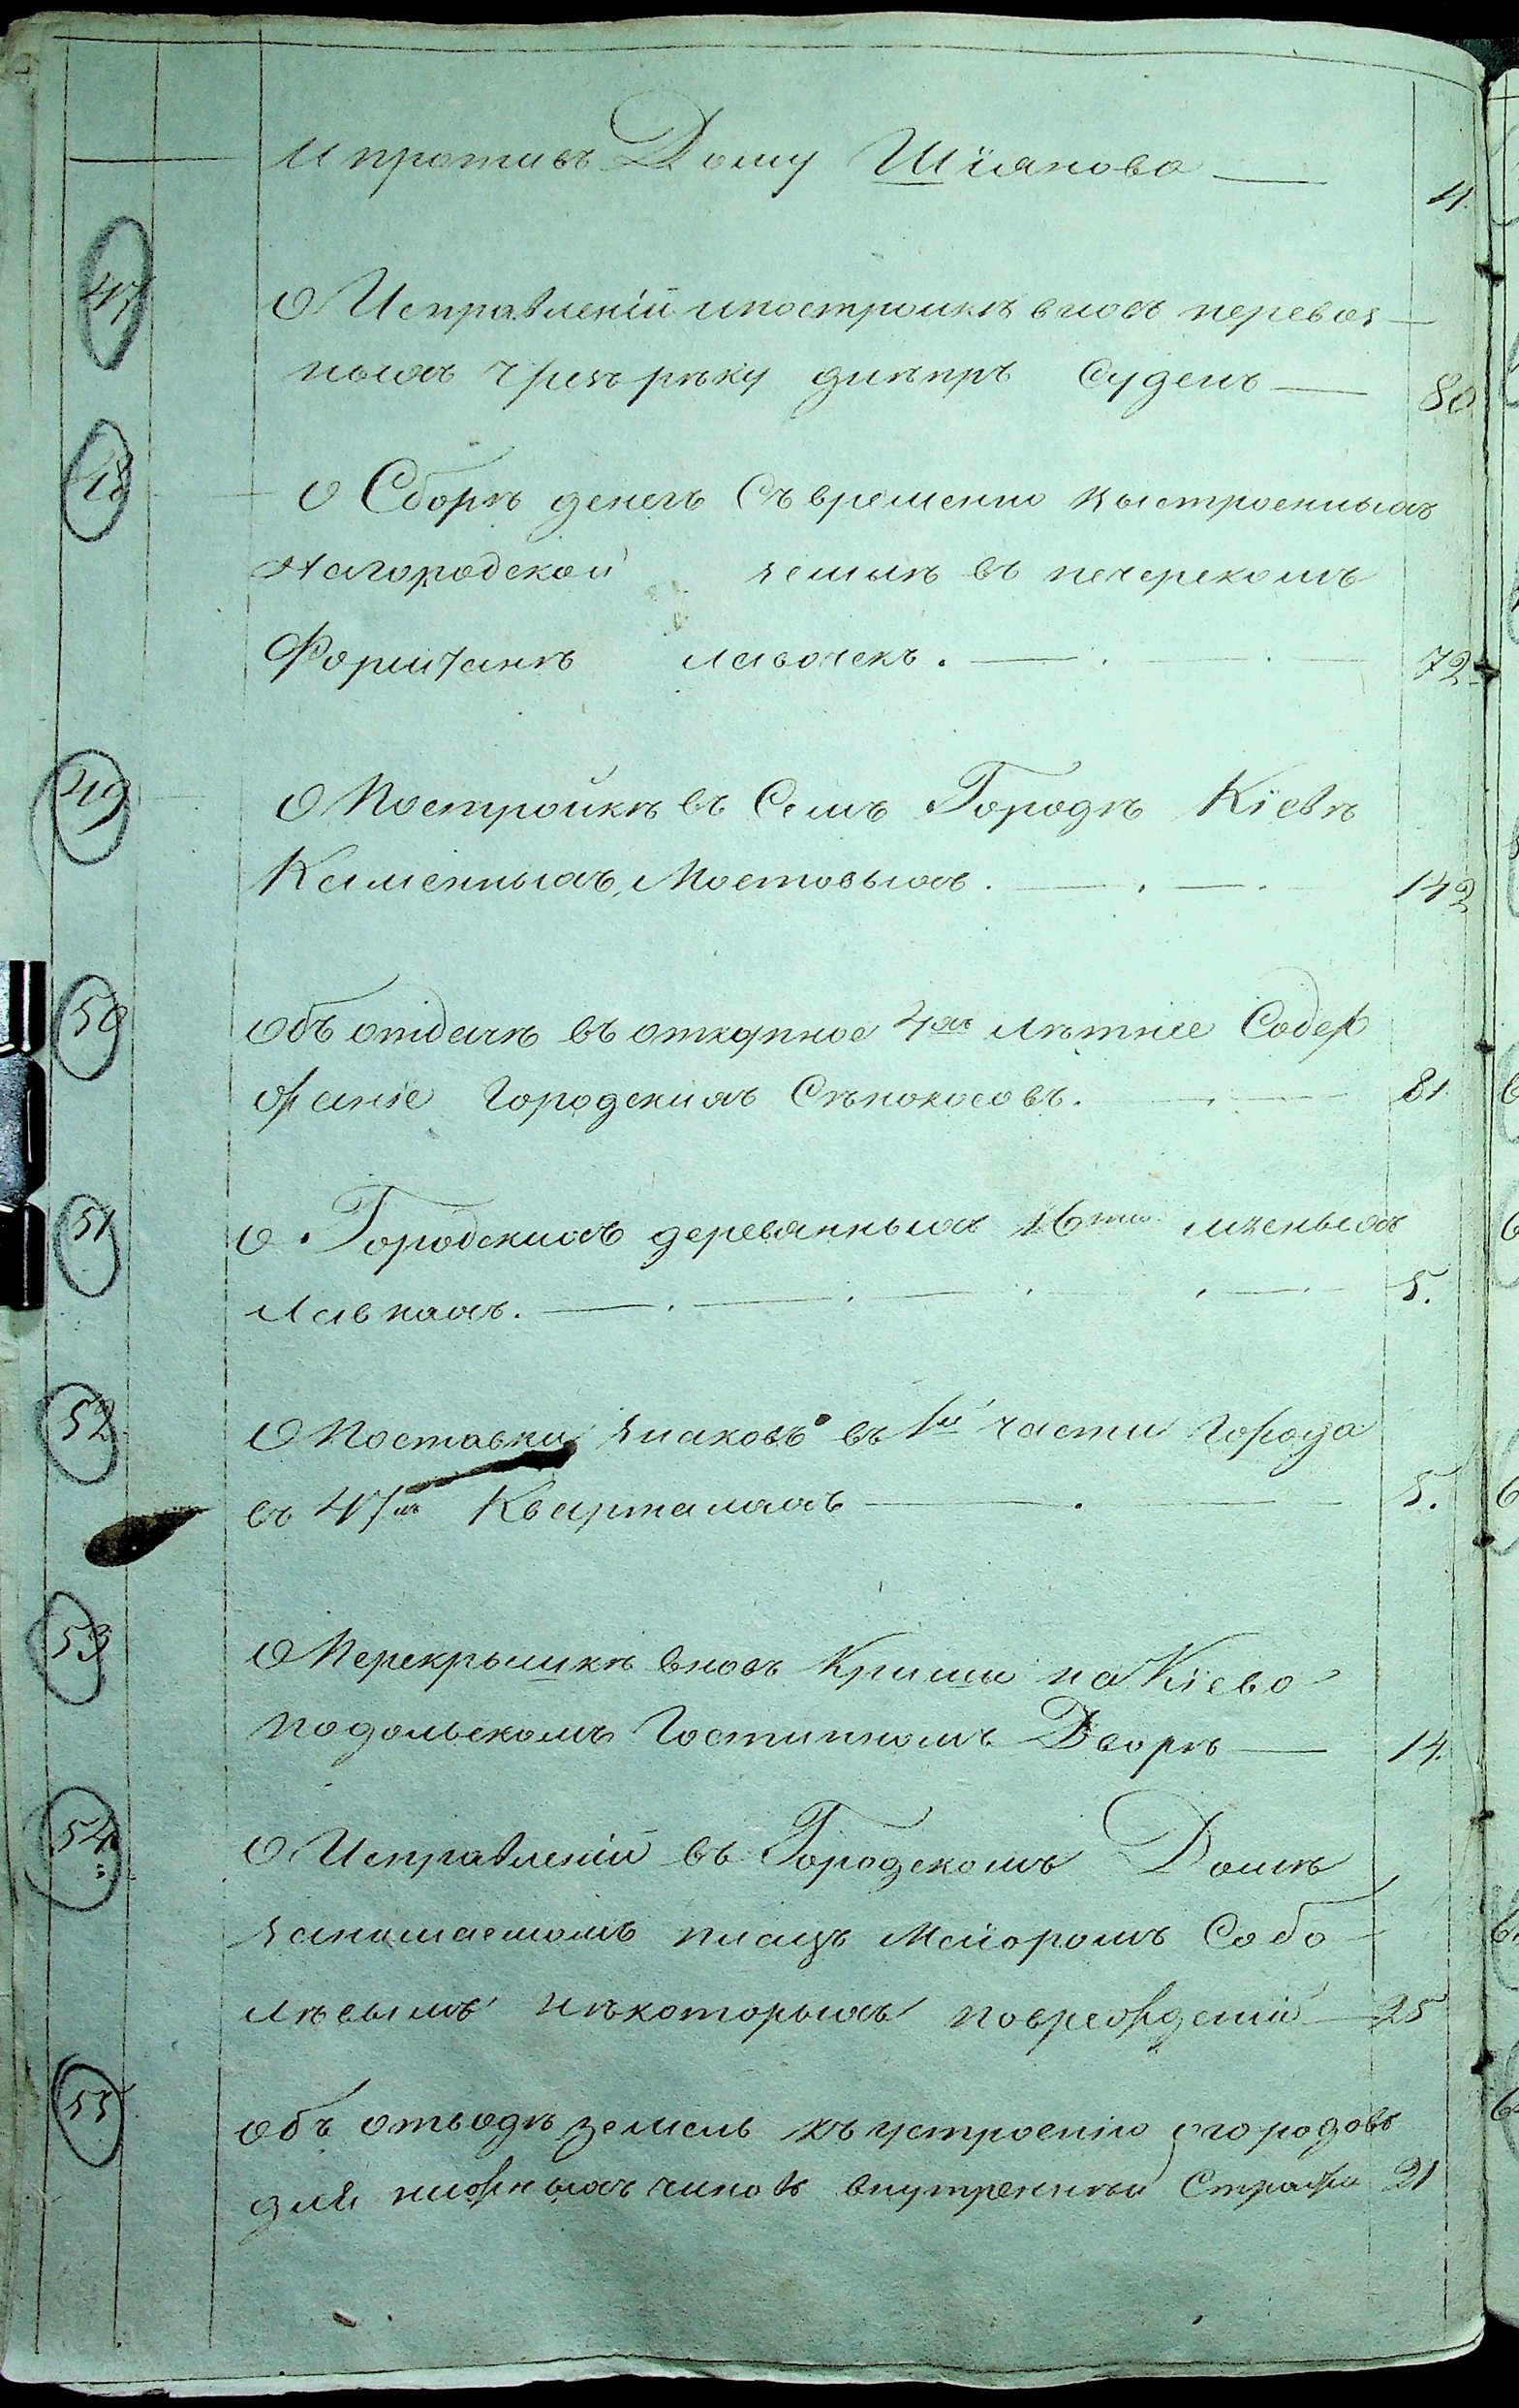 и противъ Дому Шіянова — 11.
47 О Исправленіи и постройкѣ вновь перевоз-
ныхъ чрезъ рѣку днѣпръ Суденъ — 80
48 О Сборѣ денегъ Съ временно выстроенныхъ
На городской землѣ въ печерскомъ
Форштатѣ лавочекъ. — 72
49 О Постройкѣ въ Семъ Городѣ Кіевѣ
Каменныхъ Мостовыхъ. — 142
50 Объ отдачѣ въ откупное 4хъ лѣтнее Содер
жаніе Городскихъ Сѣнокосовъ. — 81.
51 О Городскихъ деревянныхъ 16ти мѣсныхъ
Лавкахъ. — 5.
52 О Поставки знаковъ въ 1й части Города
въ 47мъ Кварталахъ — 5.
53 О Перекрышкѣ вновь Криши на Кіево
подольскомъ Гостинномъ Дворѣ — 14.
54 О Исправленіи въ Городскомъ Домѣ
занимаемомъ плацъ Маіоромъ Собо
лѣвымъ нѣкоторыхъ поврежденій — 25
55 Объ отводѣ земель къ устроенію огородовъ
для нижныхъ чиновъ внутренней Стражи 21